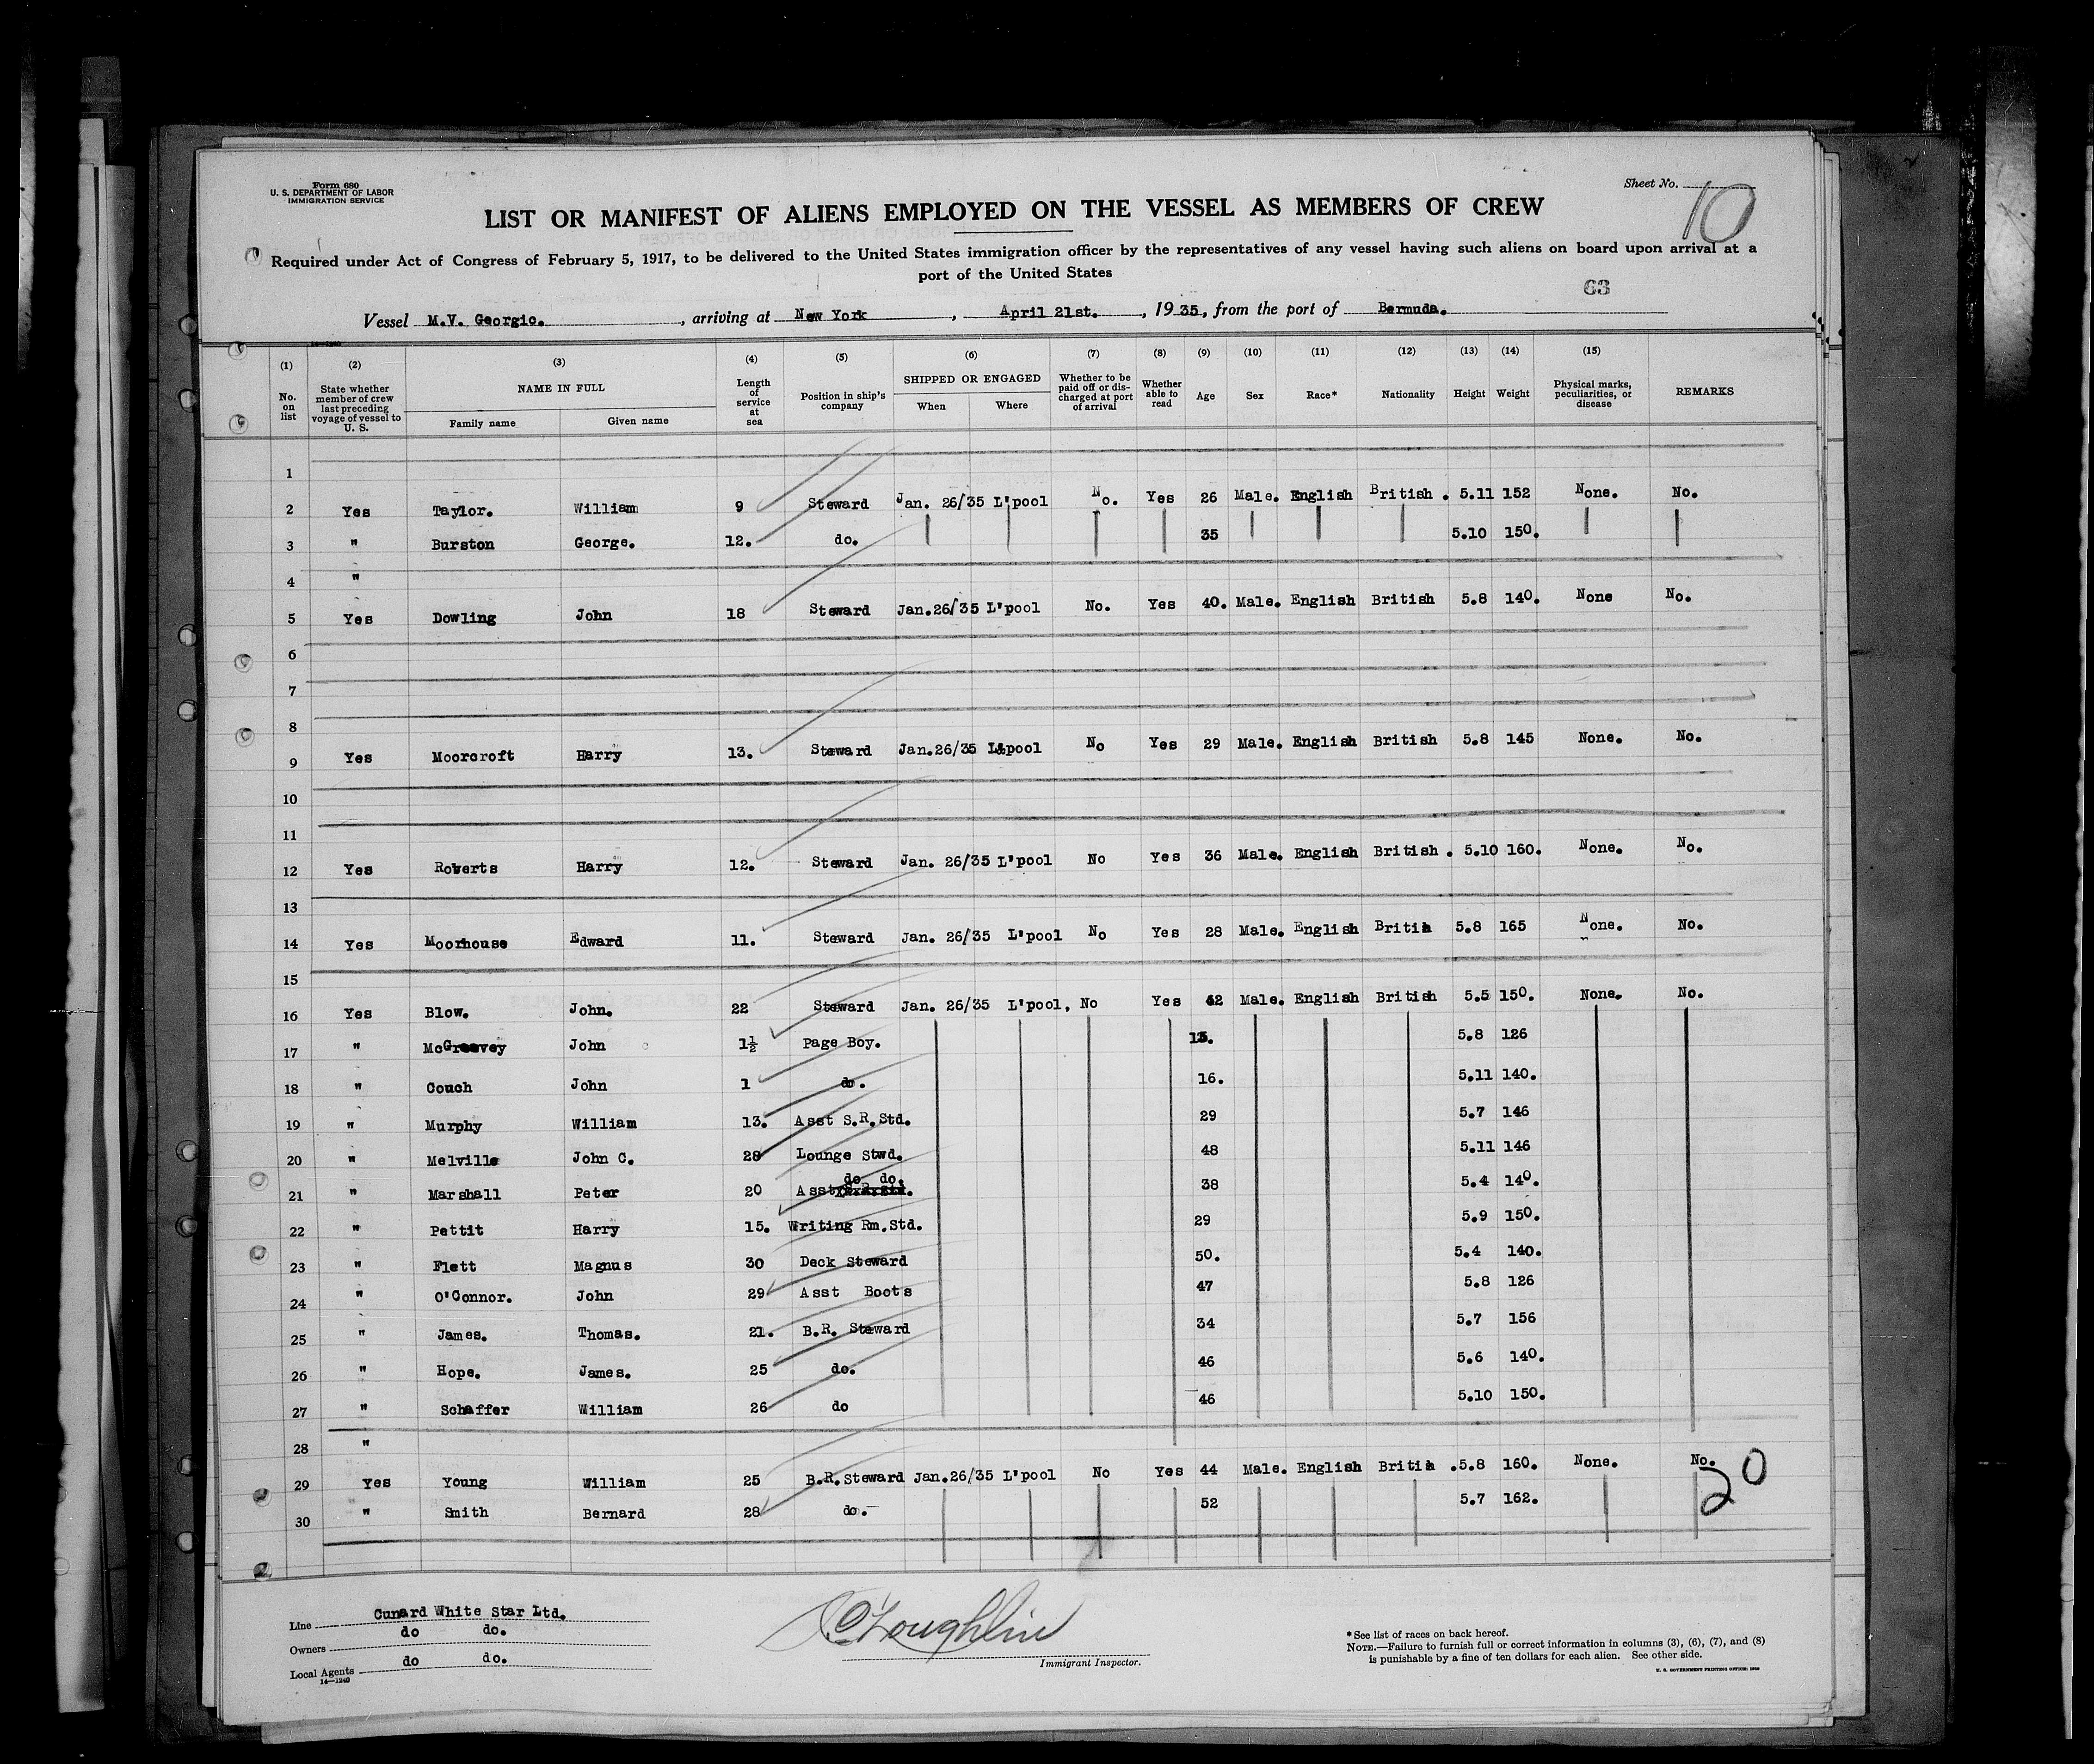 Form 680
U. S. DEPARTMENT OF LABOR
IMMIGRATION SERVICE
Sheet No. 10
LIST OR MANIFEST OF ALIENS EMPLOYED ON THE VESSEL AS MEMBERS OF CREW
Required under Act of Congress of February 5, 1917, to be delivered to the United States immigration officer by the representatives of any vessel having such aliens on board upon arrival at a
port of the United States
63
Vessel M.V. Georgic. , arriving at New York , April 21st. , 1935, from the port of Bermuda.
(1) (2) (3) (4) (5) (6) (7) (8) (9) (10) (11) (12) (13) (14) (15)
No. on list State whether member of crew last preceding voyage of vessel to U. S. NAME IN FULL Family name Given name Length of service at sea Position in ship's company SHIPPED OR ENGAGED When Where Whether to be paid off or discharged at port of arrival Whether able to read Age Sex Race* Nationality Height Weight Physical marks, peculiarities, or disease REMARKS
1
2 Yes Taylor. William 9 Steward Jan. 26/35 L'pool No. Yes 26 Male. English British . 5.11 152 None. No.
3 " Burston George. 12. do. 35 5.10 150.
4 "
5 Yes Dowling John 18 Steward Jan.26/35 L'pool No. Yes 40. Male. English British 5.8 140. None No.
6
7
8
9 Yes Moorcroft Harry 13. Steward Jan.26/35 L'pool No Yes 29 Male. English British 5.8 145 None. No.
10
11
12 Yes Roberts Harry 12. Steward Jan. 26/35 L'pool No Yes 36 Male. English British . 5.10 160. None. No.
13
14 Yes Moorhouse Edward 11. Steward Jan. 26/35 L'pool No Yes 28 Male. English Britih 5.8 165 None. No.
15
16 Yes Blow. John. 22 Steward Jan. 26/35 L'pool, No Yes 42 Male. English British 5.5 150. None. No.
17 " McGreevey John 1½ Page Boy. 5.8 126
18 " Couch John 1 do. 16. 5.11 140.
19 " Murphy William 13. Asst S.R.Std. 29 5.7 146
20 " Melville John C. 28 Lounge Stwd. 48 5.11 146
21 " Marshall Peter 20 Asst do do. 38 5.4 140.
22 " Pettit Harry 15. Writing Rm.Std. 29 5.9 150.
23 " Flett Magnus 30 Deck Steward 50. 5.4 140.
24 " O'Connor. John 29 Asst Boots 47 5.8 126
25 " James. Thomas. 21. B.R. Steward 34 5.7 156
26 " Hope. James. 25 do. 46 5.6 140.
27 " Schaffer William 26 do 46 5.10 150.
28 "
29 Yes Young William 25 B.R.Steward Jan.26/35 L'pool No Yes 44 Male. English Britih .5.8 160. None. No.
30 " Smith Bernard 28 do. 52 5.7 162.
20
Line Cunard White Star Ltd.
Owners do do.
Local Agents do do.
14—1240
Immigrant Inspector.
*See list of races on back hereof.
NOTE.—Failure to furnish full or correct information in columns (3), (6), (7), and (8)
is punishable by a fine of ten dollars for each alien. See other side.